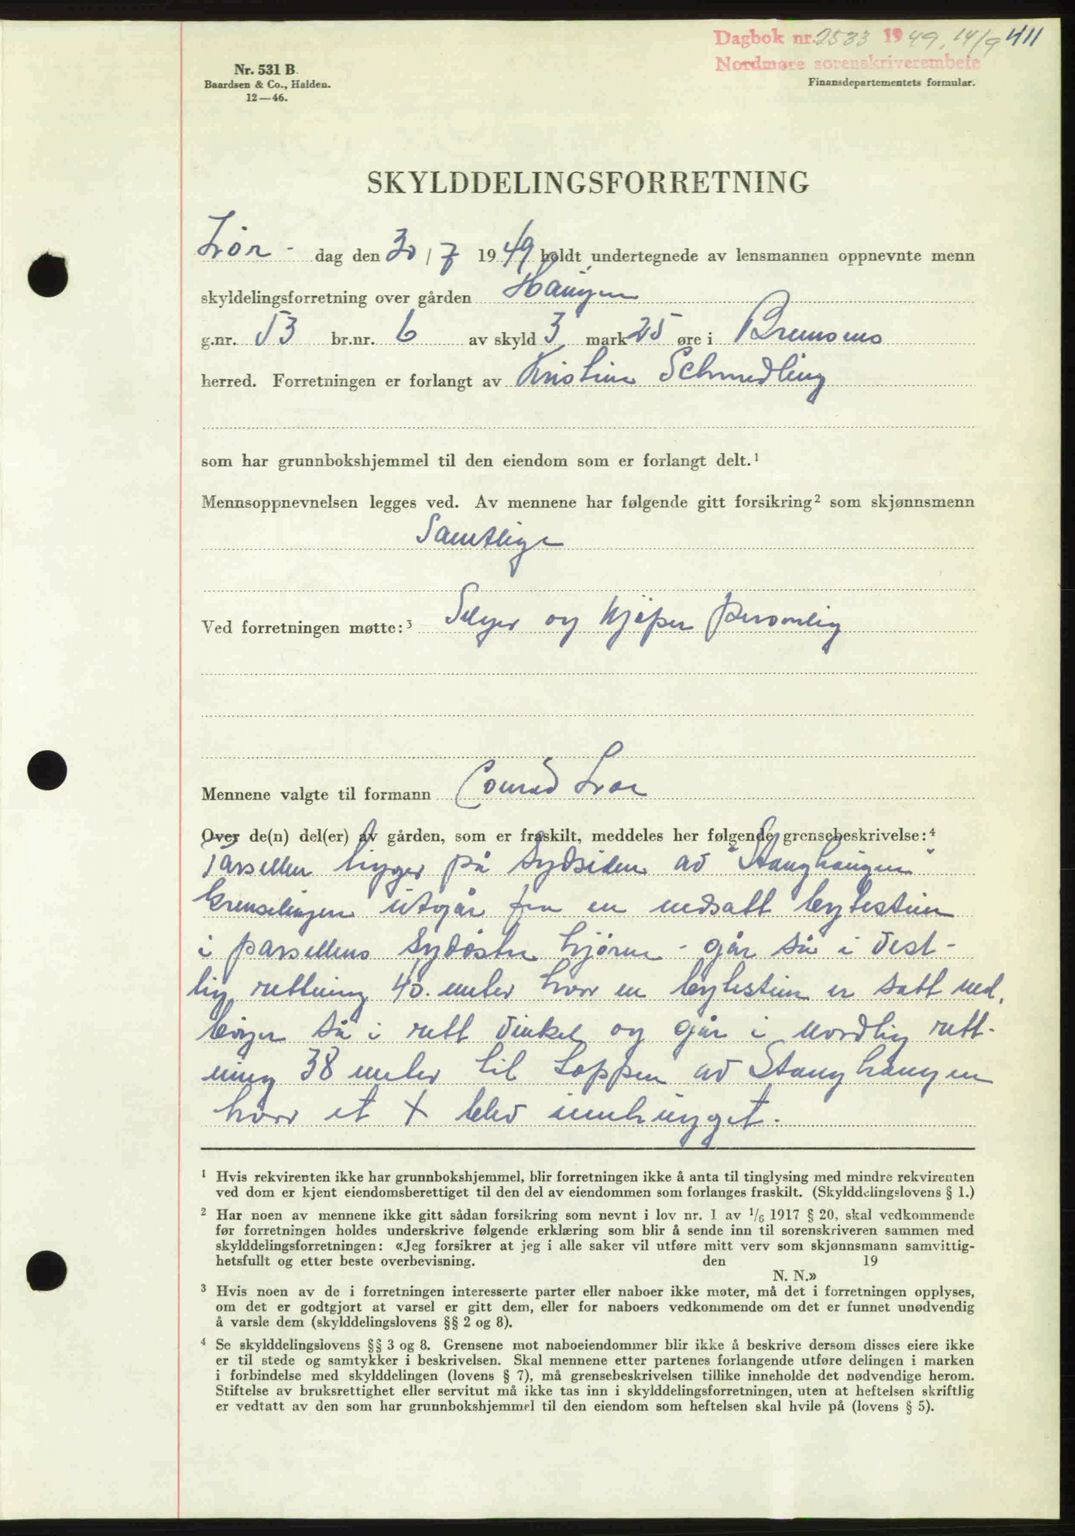 Dagbok nr. 2533 1949, 14/9 411
Nordmøre sorenskriverembete
Nr. 531 B.
Baardsen & Co., Halden.
12—46.
Finansdepartementets formular.
SKYLDDELINGSFORRETNING
Lør- dag den 30/7 1949 holdt undertegnede av lensmannen oppnevnte menn
skyldelingsforretning over gården Haugen
g.nr. 53 br.nr. 6 av skyld 3 mark 25 øre i Bremsnes
herred. Forretningen er forlangt av Kristine Schmedling
som har grunnbokshjemmel til den eiendom som er forlangt delt.¹
Mennsoppnevnelsen legges ved. Av mennene har følgende gitt forsikring² som skjønnsmenn
Samtlige
Ved forretningen møtte:³ Selger og kjøper personlig
Mennene valgte til formann Conrad
Over de(n) del(er) av gården, som er fraskilt, meddeles her følgende grensebeskrivelse:⁴
Parsellen ligger på Sydsiden av "Stanghaugen"
Grenselinjen utgår fra en nedsatt bytesten
i parsellens Sydøstre hjørne - går så i vest-
lig rettning 40. meter hvor en bytesten er satt ned,
bøyer så i rett vinkel og går i Nordlig rett-
ning 38 meter til Toppen av Stanghaugen
hvor et + blev innhugget.
¹ Hvis rekvirenten ikke har grunnbokshjemmel, blir forretningen ikke å anta til tinglysing med mindre rekvirenten
ved dom er kjent eiendomsberettiget til den del av eiendommen som forlanges fraskilt. (Skylddelingslovens § 1.)
² Har noen av mennene ikke gitt sådan forsikring som nevnt i lov nr. 1 av 1/6 1917 § 20, skal vedkommende
før forretningen holdes underskrive følgende erklæring som blir å sende inn til sorenskriveren sammen med
skylddelingsforretningen: «Jeg forsikrer at jeg i alle saker vil utføre mitt verv som skjønnsmann samvittig-
hetsfullt og etter beste overbevisning. den 19
N. N.»
³ Hvis noen av de i forretningen interesserte parter eller naboer ikke møter, må det i forretningen opplyses,
om det er godtgjort at varsel er gitt dem, eller for naboers vedkommende om det er funnet unødvendig
å varsle dem (skylddelingslovens §§ 2 og 8).
⁴ Se skylddelingslovens §§ 3 og 8. Grensene mot naboeiendommer blir ikke å beskrive dersom disses eiere ikke
er til stede og samtykker i beskrivelsen. Skal mennene etter partenes forlangende utføre delingen i marken
i forbindelse med skylddelingen (lovens § 7), må grensebeskrivelsen tillike inneholde det nødvendige herom.
Stiftelse av bruksrettighet eller servitut må ikke tas inn i skylddelingsforretningen, uten at heftelsen skriftlig
er vedtatt av den som har grunnbokshjemmel til den eiendom som heftelsen skal hvile på (lovens § 5).